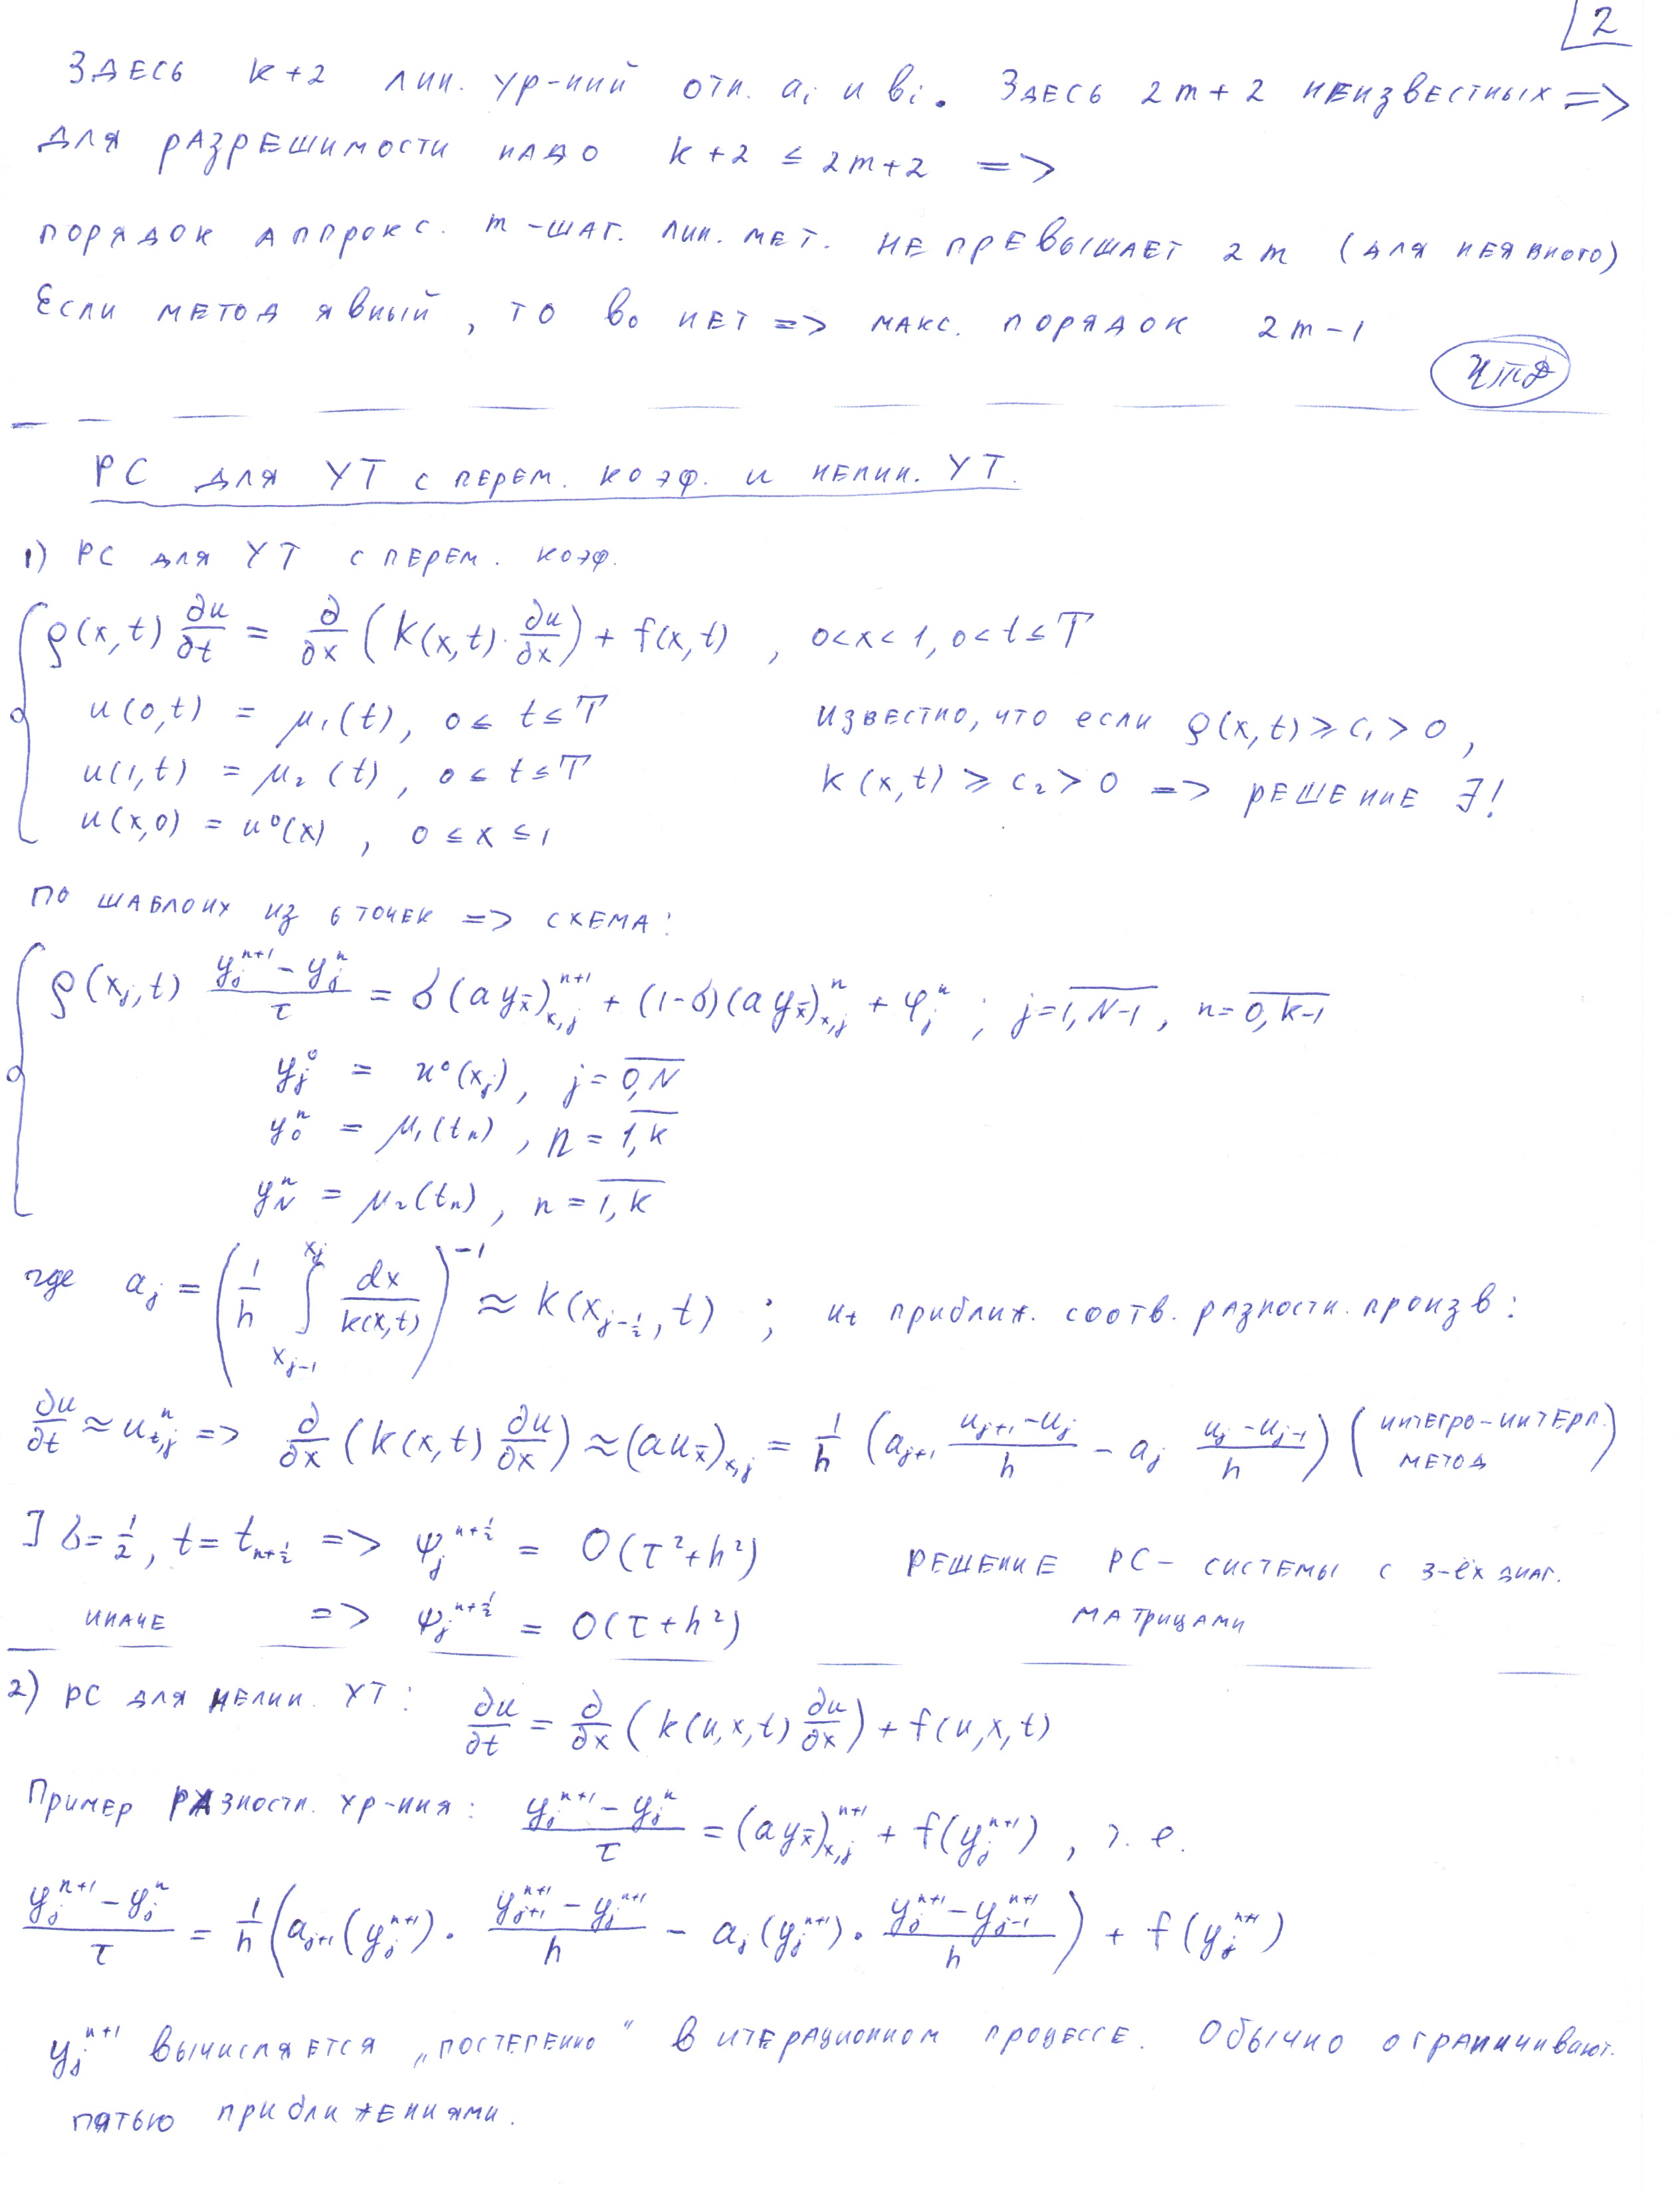 2
Здесь k+2 лин. ур-ний отн. aᵢ и bᵢ. Здесь 2m+2 неизвестных =>
для разрешимости надо k+2 ≤ 2m+2 =>
порядок аппрокс. m-шаг. лин. мет. не превышает 2m (для неявного)
Если метод явный, то b₀ нет => макс. порядок 2m-1
ЧТД
РС для УТ с перем. коэф. и нелин. УТ.
1) РС для УТ с перем. коэф.
ρ(x,t) ∂u/∂t = ∂/∂x (k(x,t)·∂u/∂x) + f(x,t), 0<x<1, 0<t≤T
u(0,t) = μ₁(t), 0≤t≤T известно, что если ρ(x,t) ≥ c₁ > 0,
u(1,t) = μ₂(t), 0≤t≤T k(x,t) ≥ c₂ > 0 => решение ∃!
u(x,0) = u⁰(x), 0≤x≤1
по шаблону из 6 точек => схема:
ρ(xⱼ,t) (yⱼⁿ⁺¹ - yⱼⁿ)/τ = σ(a y_x̄)ⁿ⁺¹_{x,j} + (1-σ)(a y_x̄)ⁿ_{x,j} + φⱼⁿ; j=\overline{1,N-1}, n=\overline{0,k-1}
yⱼ⁰ = u⁰(xⱼ), j=\overline{0,N}
y₀ⁿ = μ₁(tₙ), n=\overline{1,k}
y_Nⁿ = μ₂(tₙ), n=\overline{1,k}
где aⱼ = (1/h ∫_{x_{j-1}}^{xⱼ} dx/k(x,t))⁻¹ ≈ k(x_{j-½},t); uₜ приближ. соотв. разностн. произв:
∂u/∂t ≈ uⁿ_{t,j} => ∂/∂x (k(x,t) ∂u/∂x) ≈ (a u_x̄)_{x,j} = 1/h (a_{j+1} (u_{j+1}-uⱼ)/h - aⱼ (uⱼ-u_{j-1})/h) (интегро-интерп. метод)
] σ=½, t=t_{n+½} => ψⱼ^{n+½} = O(τ²+h²) решение РС - системы с 3-ёх диаг.
иначе => ψⱼ^{n+½} = O(τ+h²) матрицами
2) РС для нелин. УТ: ∂u/∂t = ∂/∂x (k(u,x,t) ∂u/∂x) + f(u,x,t)
Пример разностн. ур-ния: (yⱼⁿ⁺¹ - yⱼⁿ)/τ = (a y_x̄)ⁿ⁺¹_{x,j} + f(yⱼⁿ⁺¹), т.е.
(yⱼⁿ⁺¹ - yⱼⁿ)/τ = 1/h (a_{j+1}(yⱼⁿ⁺¹)·(y_{j+1}ⁿ⁺¹ - yⱼⁿ⁺¹)/h - aⱼ(yⱼⁿ⁺¹)·(yⱼⁿ⁺¹ - y_{j-1}ⁿ⁺¹)/h) + f(yⱼⁿ⁺¹)
yⱼⁿ⁺¹ вычисляется „постепенно" в итерационном процессе. Обычно ограничивают.
пятью приближениями.